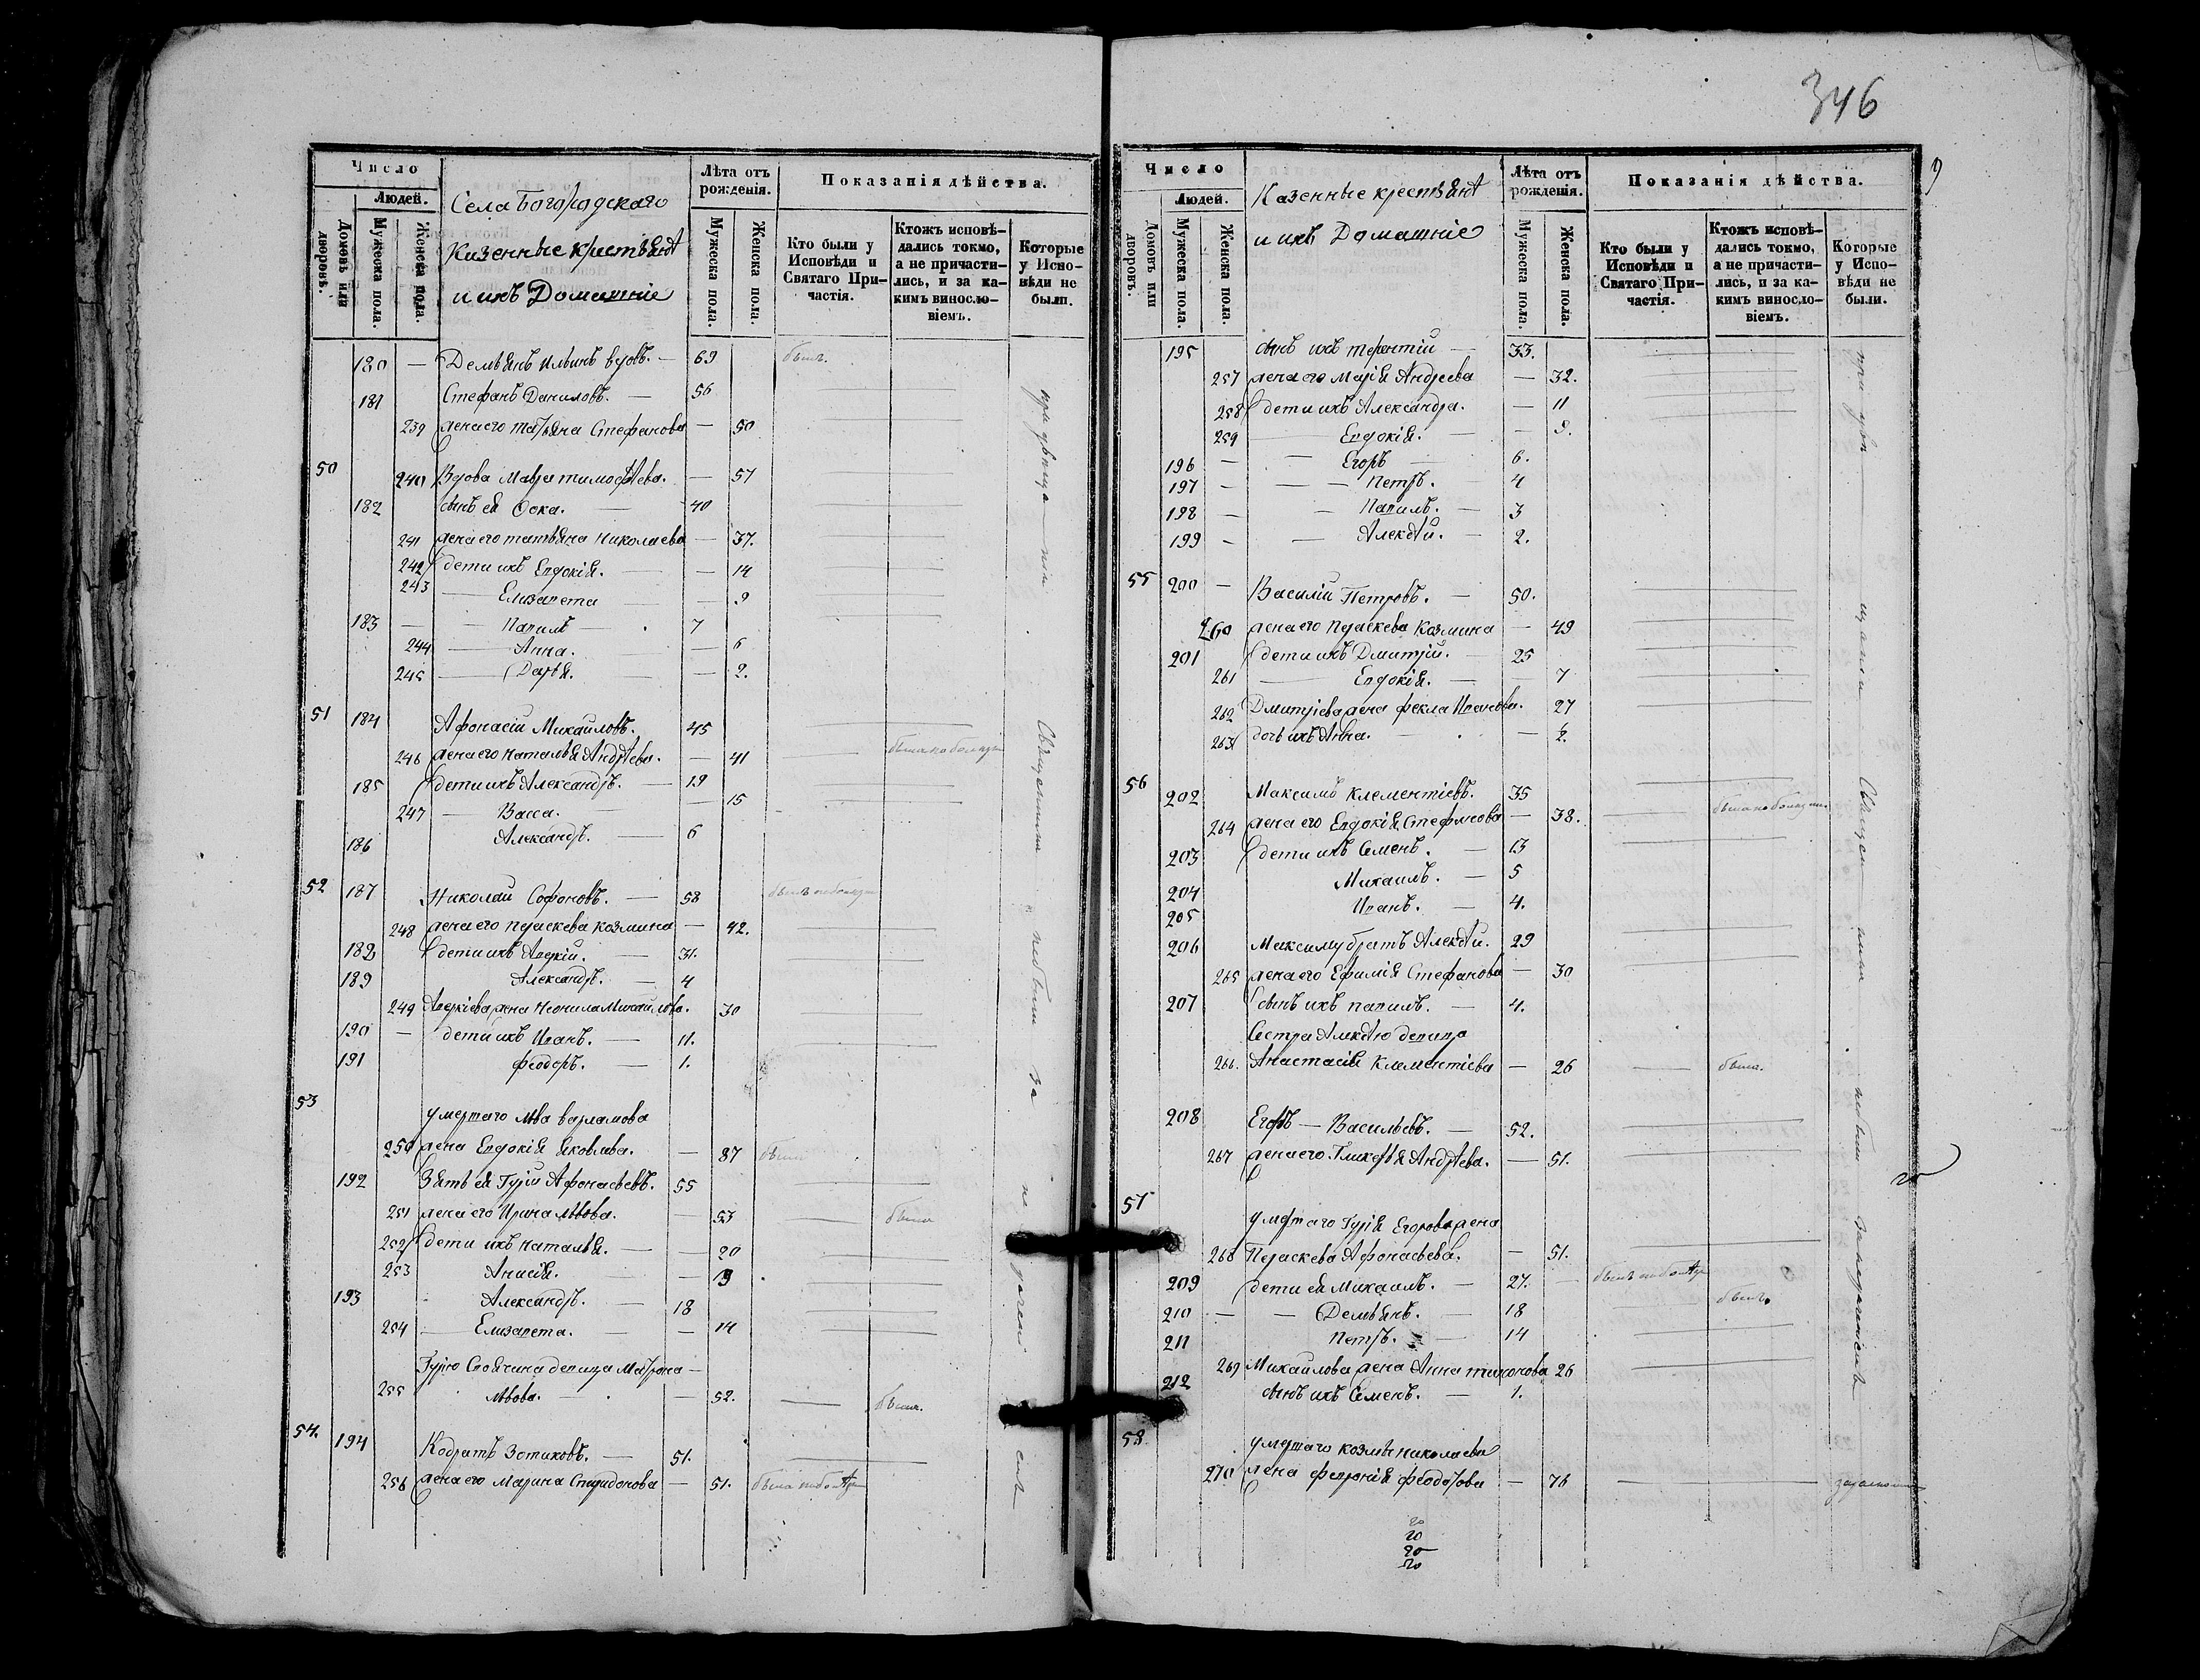 Число
Людей.
Домовъ или дворовъ.
Мужеска пола.
Женска пола.
Села Богородскаго
Казенные крестьянѣ
и ихъ Домашніе
Лѣта отъ рожденія.
Мужеска пола.
Женска пола.
Показанія дѣйства.
Кто были у Исповѣди и Святаго Причастія.
Ктожъ исповѣдались токмо, а не причастились, и за какимъ винословіемъ.
Которые у Исповѣди не были.
180 — Демьянъ Ильинъ вдовъ. — 69 былъ.
181 Стефанъ Даниловъ. — 56
239 жена его Татьяна Стефанова — 50
50 240 Вдова Мавра Тимофѣева. — 57
182 сынъ ея Фока. — 40
241 жена его Татьяна Николаева — 37.
242 дети ихъ Евдокія. — 14
243 Елизавета — 9
183 — Павилъ — 7
244 Анна. — 6
245 Дарья. — 2.
51 184 Афонасіи Михайловъ. 45
246 жена его Наталья Андрѣева. — 41
185 дети ихъ Александръ. — 19
247 — Васса. — 15
186 Александръ. — 6
52 187 Николай Софоновъ. — 58
248 жена его Праскева Козмина — 42.
188 дети ихъ Аверкій. — 31.
189 Александръ. — 4
249 Аверкіева жена Неонила Михайлова. 30
190 — дети ихъ Иванъ. — 11.
191 Феодоръ. — 1.
53 умершаго Льва Варламова
250 жена Евдокія Яковлева. — 87
192 Зять ея Гурій Афонасьевъ. 55
251 жена его Ирина Львова. — 53
252 дети ихъ Наталья. — 20
253 Анисія. — 19
193 Александръ. — 18
254 — Елизавета. — 14
Гурію Своячина девица Матрона —
255 Львова. — 52.
54. 194 Кодратъ Зотиковъ. — 51.
256 жена его Марина Спиридонова — 51.
346
Число
Людей.
Домовъ или дворовъ.
Мужеска пола.
Женска пола.
Казенные крестьянѣ
и ихъ Домашніе
Лѣта отъ рожденія.
Мужеска пола.
Женска пола.
Показанія дѣйства.
Кто были у Исповѣди и Святаго Причастія.
Ктожъ исповѣдались токмо, а не причастились, и за какимъ винословіемъ.
Которые у Исповѣди не были.
195 сынъ ихъ Терентіи — 33.
257 жена его Марія Андреева — 32.
258 дети ихъ Александра. — 11
259 — Евдокія. — 9.
196 — Егоръ — 6.
197 — Петръ. 4
198 — Павилъ. — 3
199 — Алексѣй. — 2.
55 200 — Василіи Петровъ. — 50.
260 жена его Праскева Козмина — 49
201 дети ихъ Дмитрій. — 25
261 — Евдокія. — 7
262 Дмитріева жена Фекла Иванова. 27
263 дочь ихъ Анна. — 2.
56 202 Максимъ Клементіевъ. 35
264 жена его Евдокія Стефанова — 38.
203 дети ихъ Семенъ. — 13
204 Михаилъ. — 5
205 Иванъ. — 4.
206 Максиму братъ Алексѣй. 29
265 жена его Ефимія Стефанова — 30
207 сынъ ихъ Павилъ. — 4.
Сестра Алексѣю девица
266. Анастасія Клементіева — 26 была.
208 Егоръ — Васильевъ. — 52.
267 жена его Гликерья Андрѣева. — 51.
57 умершаго Гурія Егорова жена
268 Праскева Афонасьева. — 51.
209 дети ея Михаилъ. — 27.
210 — Демьянъ. — 18 былъ.
211 Петръ. — 14
269 Михайлова жена Анна Тихонова 26
212 сынъ ихъ Семенъ. — 1.
58. умершаго Козмы Николаева
270 жена Февронія Феодотова — 76
20
20
20
20